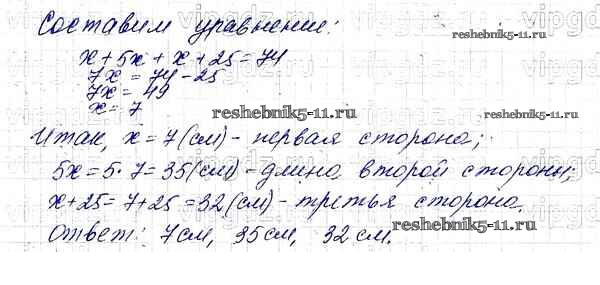 Составим уравнение:
x + 5x + x + 25 = 74
7x = 74 - 25
7x = 49
x = 7
reshebnik5-11.ru
Итак, x = 7 (см) - первая сторона;
5x = 5 · 7 = 35 (см) - длина второй стороны;
x + 25 = 7 + 25 = 32 (см) - третья сторона.
reshebnik5-11.ru
Ответ: 7 см, 35 см, 32 см.